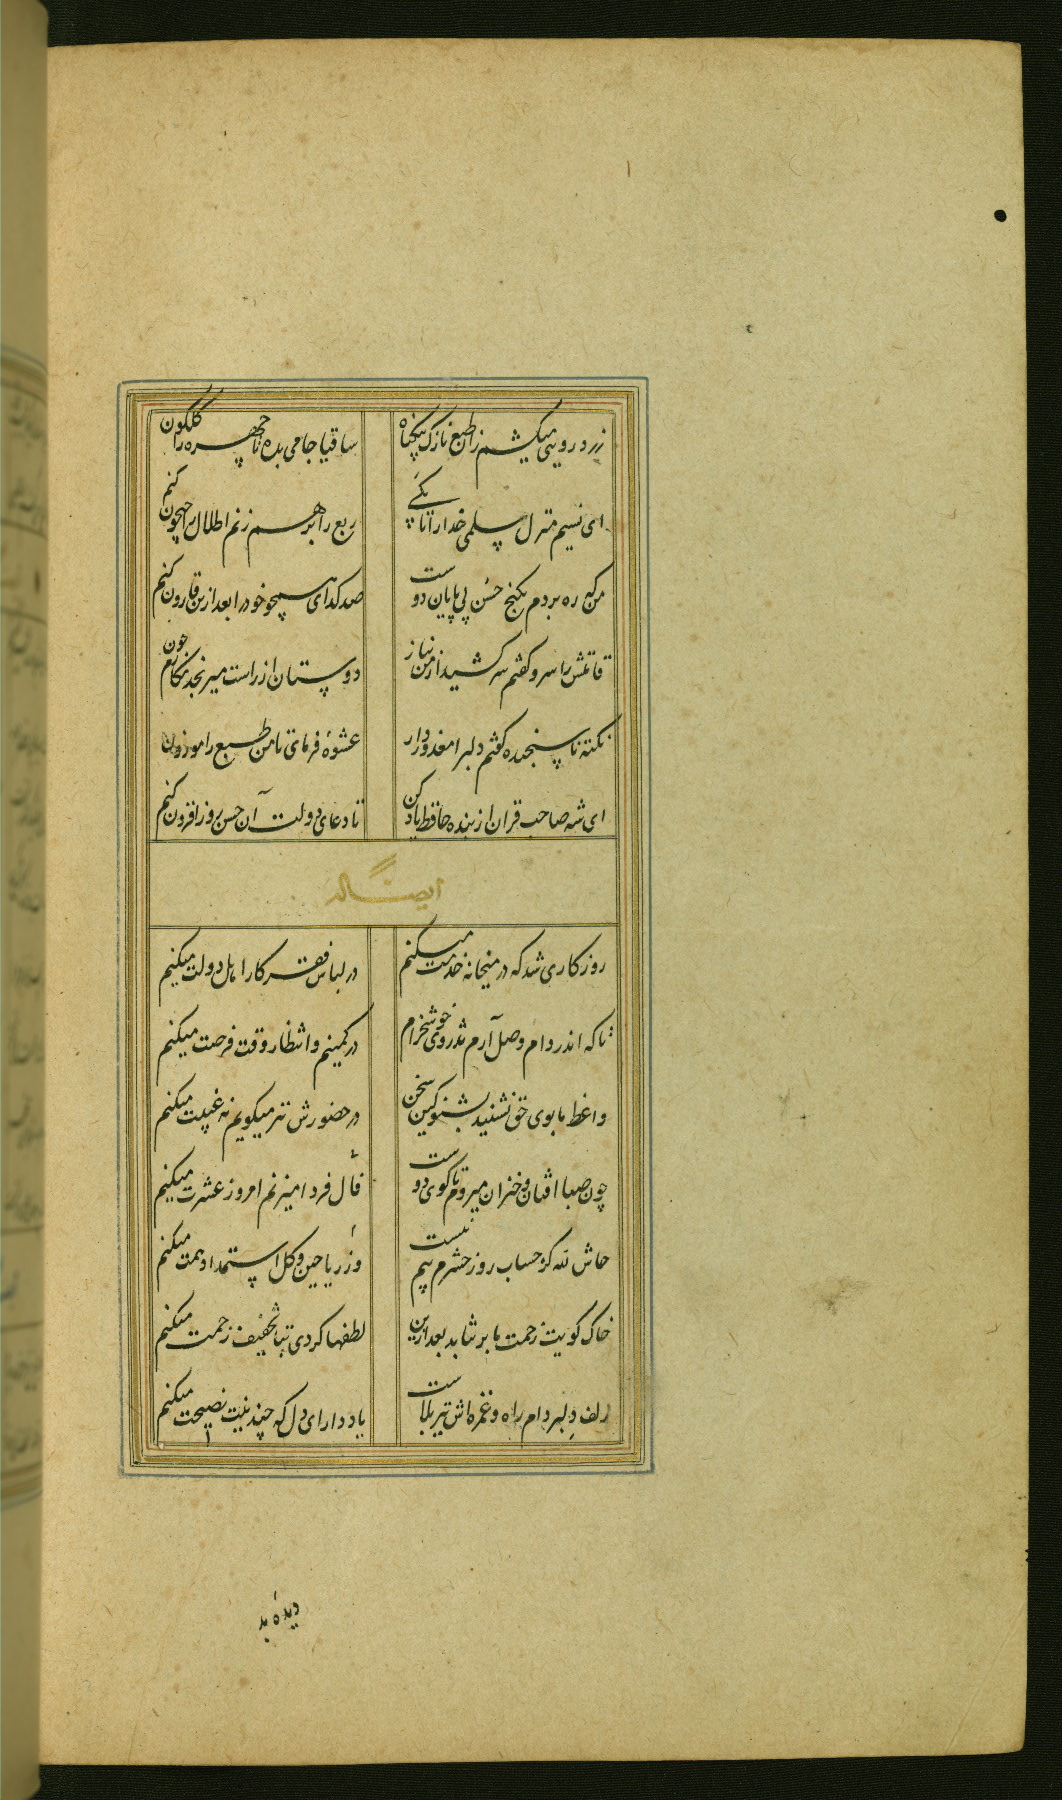 زرد رویی میکشم زان طبع نازک بیگناه
ساقیا جامی بده تا چهره را گلگون کنم
ای نسیم منزل سلمی خدا را تا بکی
ربع را برهم زنم اطلال را جیحون کنم
من که ره بردم بگنج حسن بی پایان دوست
صد گدای همچو خود را بعد ازین قارون کنم
قامتش را سرو گفتم سر کشید از من بناز
دوستان از راست میرنجد نگارم چون
نکته ناسنجیده گفتم دلبرا معذور دار
عشوهٔ فرمای تا من طبع را موزون
ای شه صاحب قران از بنده حافظ یاد کن
تا دعای دولت آن حسن روز افزون کنم
ایضا له
روزگاری شد که در میخانه خدمت میکنم
در لباس فقر کار اهل دولت میکنم
تا که اندر دام وصل آرم تذروی خوشخرام
در کمینم و انتظار وقت فرصت میکنم
واعظ ما بوی حق نشنید بشنو کین سخن
در حضورش نیز میکویم نه غیبت میکنم
چون صبا افتان و خیزان میروم تا کوی دوست
فال فردا میزنم امروز عشرت میکنم
حاش لله کز حساب روز حشرم بیم نیست
وز ریاحین و گل استمداد همت میکنم
خاک کویت زحمت ما بر نتابد بعد ازین
لطفها کردی بتا تخفیف زحمت میکنم
زلف دلبر دام راه و غمزه اش تیر بلاست
یاد دار ای دل که چندینت نصیحت میکنم
دیدهٔ بد